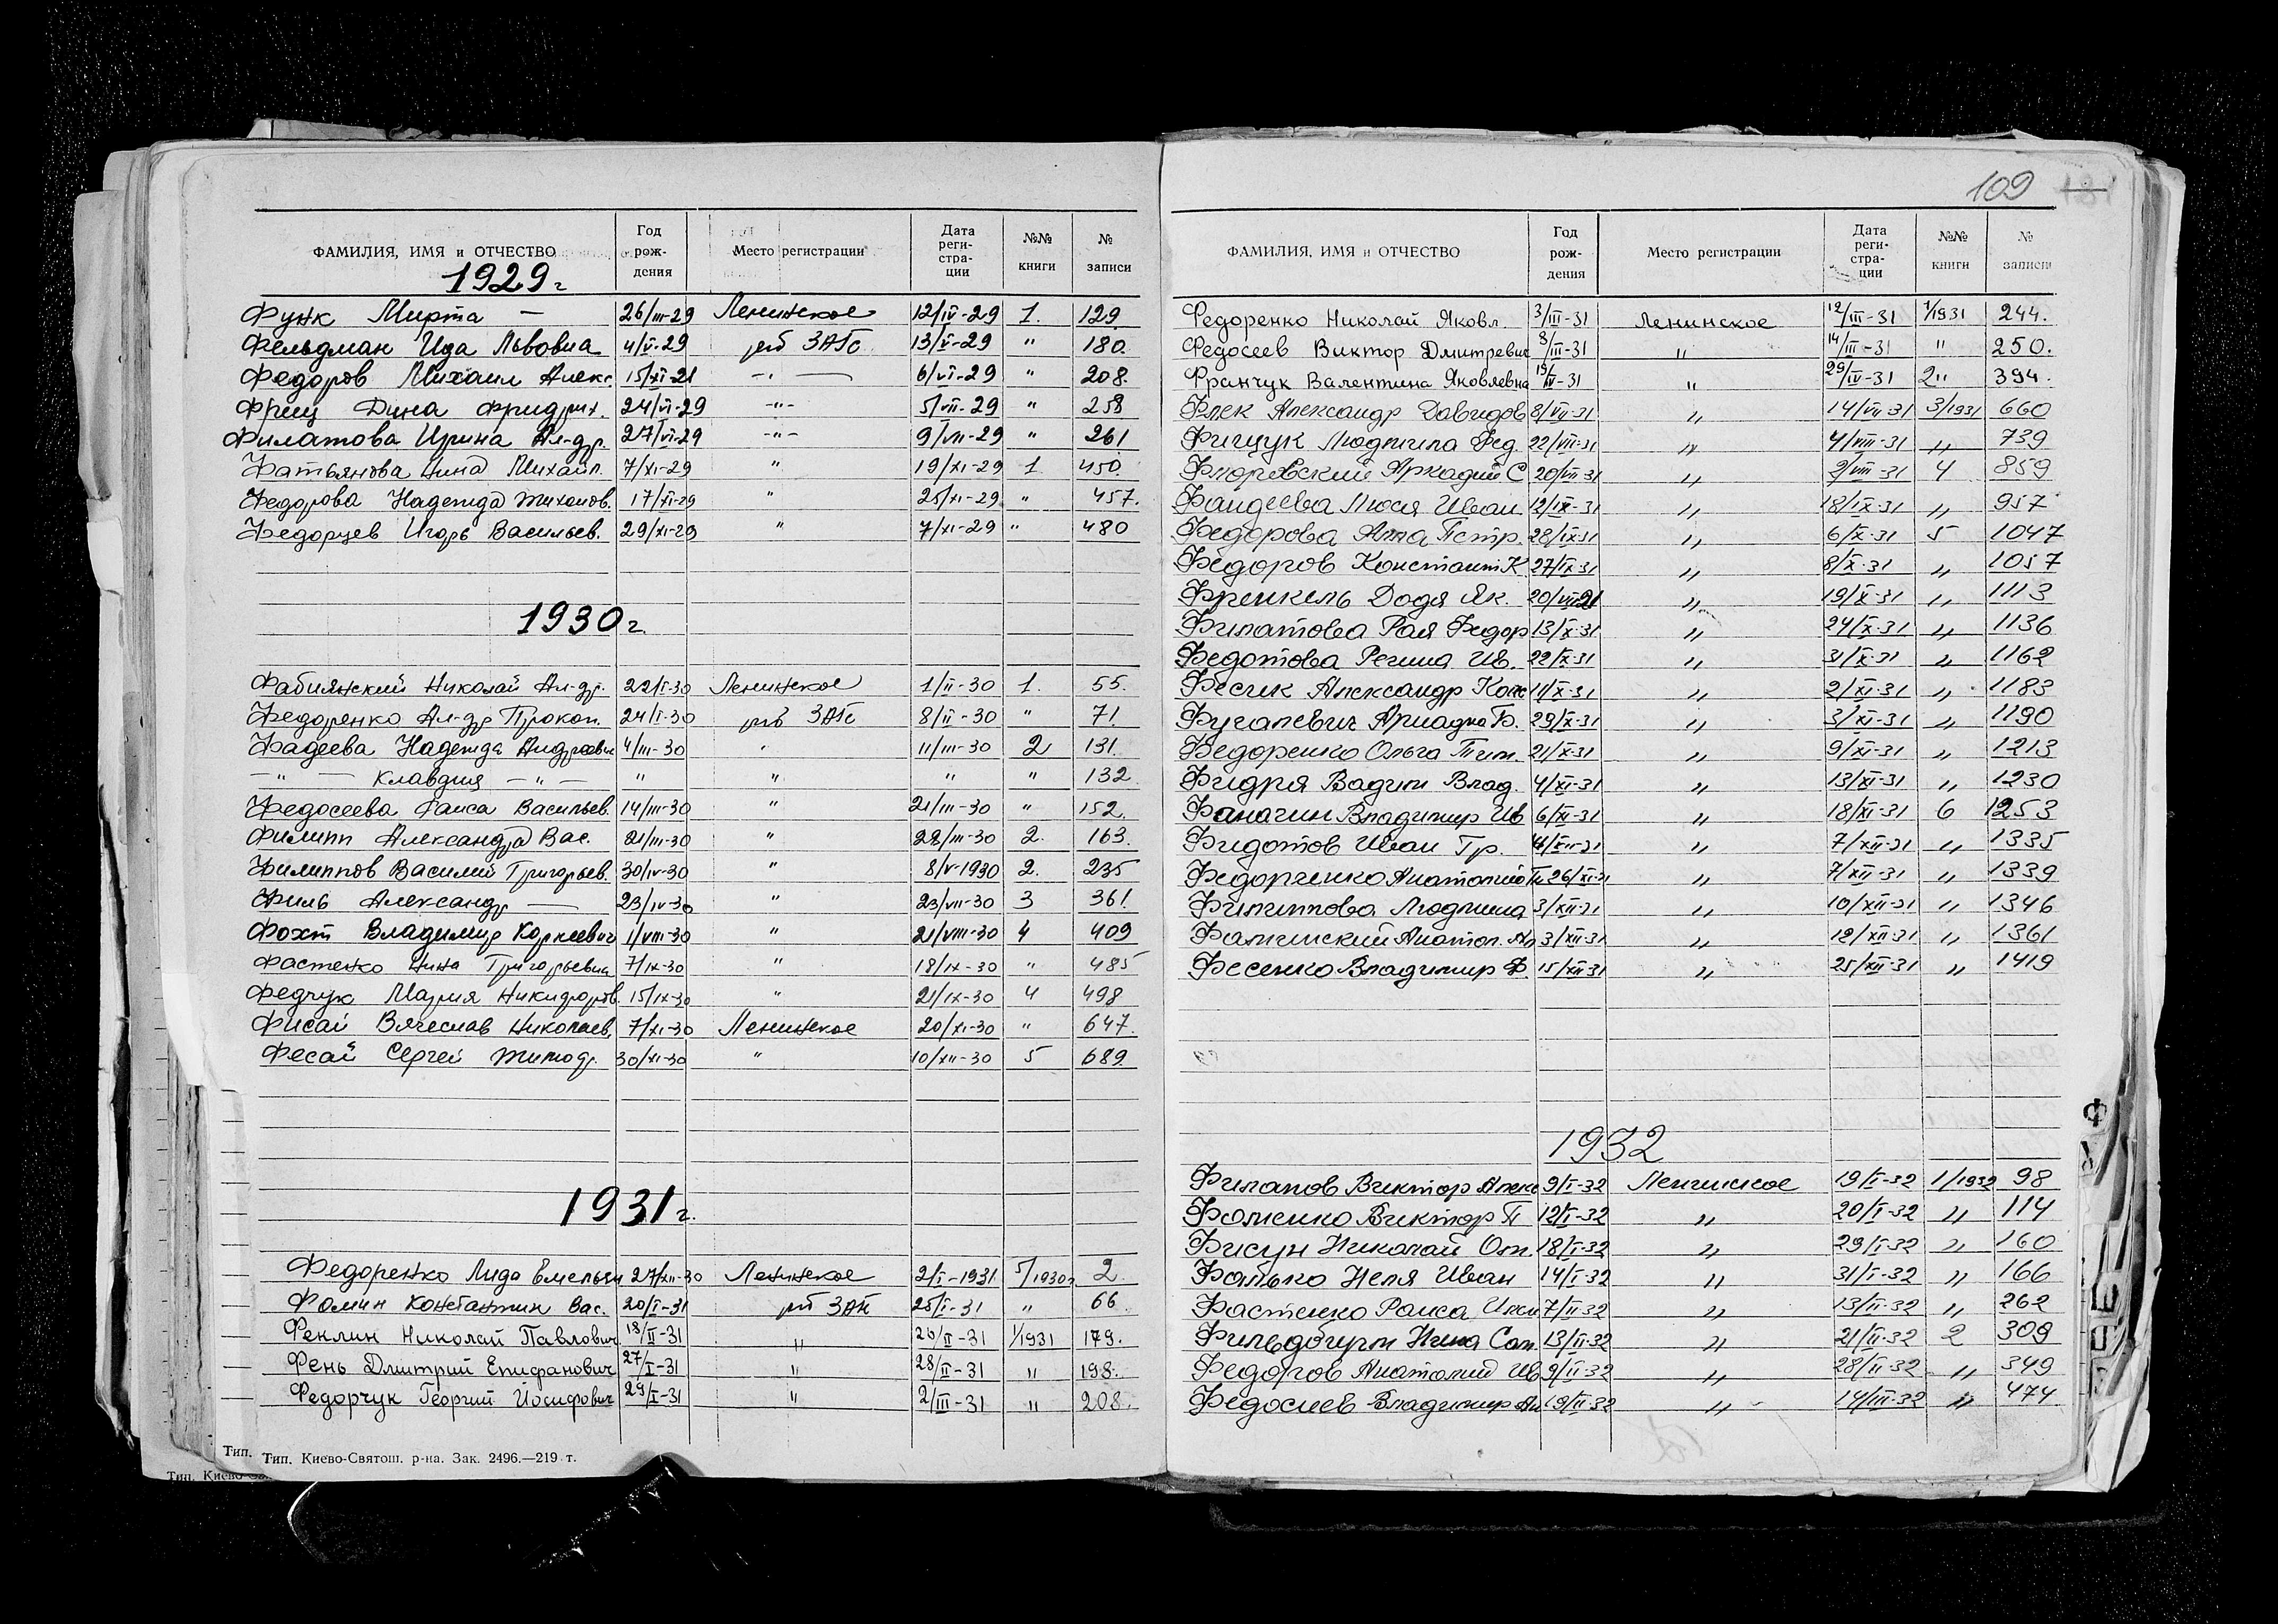 ФАМИЛИЯ, ИМЯ и ОТЧЕСТВО Год рождения Место регистрации Дата регистрации №№ книги № записи
1929 г
Функ Мирта — 26/III-29 Ленинское 12/IV-29 1. 129
Фельдман Ида Львовна 4/V-29 ЗАГс 13/V-29 " 180.
Федоров Михаил Алекс. 15/XI-21 -"- 6/VI-29 " 208.
Фриц Дина Фридрих. 24/VI-29 -"- 5/VII-29 " 258
Филатова Ирина Ал-др. 27/VI-29 -"- 9/VII-29 " 261
Фатьянова Нина Михайл. 7/XI-29 " 19/XI-29 1 450.
Федорова Надежда Тихонов. 17/XI-29 " 25/XI-29 " 457.
Федорцев Игорь Васильев. 29/XI-29 " 7/XI-29 " 480
1930 г.
Фабиянский Николай Ал-др. 22/I-30 Ленинское 1/II-30 1. 55.
Федоренко Ал-др Прокоп. 24/I-30 ЗАГс 8/II-30 " 71.
Фадеева Надежда Андреевн 4/III-30 " 11/III-30 2 131.
—"— Клавдия —"— " " " " 132
Федосеева Раиса Васильев. 14/III-30 " 21/III-30 " 152.
Филипп Александра Вас. 21/III-30 " 28/III-30 2. 163.
Филиппов Василий Григорьев. 30/IV-30 " 8/V-1930 2. 235
Филь Александр — 23/IV-30 " 23/VII-30 3 361.
Фохт Владимир Корнеевич 1/VIII-30 " 21/VIII-30 4 409
Фастенко Нина Григорьевна 7/IX-30 " 18/IX-30 " 485
Федчук Мария Никифоров. 15/IX-30 " 21/IX-30 4 498
Фисай Вячеслав Николаев. 7/XI-30 Ленинское 20/XI-30 " 647.
Фесай Сергей Тимоф. 30/XI-30 " 10/XII-30 5 689.
1931 г.
Федоренко Лида Емельян 27/XII-30 Ленинское 2/I-1931 5/1930г 2.
Фомин Константин Вас. 20/I-31 25/I-31 " 66.
Феклин Николай Павлович 18/II-31 " 26/II-31 1/1931 179.
Фень Дмитрий Епифанович 27/I-31 " 28/II-31 " 198.
Федорчук Георгий Иосифович 29/I-31 " 2/III-31 " 208.
Тип. Киево-Святош. р-на. Зак. 2496.—219 т.
109
ФАМИЛИЯ, ИМЯ и ОТЧЕСТВО Год рождения Место регистрации Дата регистрации №№ книги № записи
Федоренко Николай Яковл. 3/III-31 Ленинское 12/III-31 1/1931 244.
Федосеев Виктор Дмитревич 8/III-31 " 14/III-31 " 250.
Франчук Валентина Яковлевна 19/IV-31 " 29/IV-31 2" 394.
Флек Александр Давидов 8/VII-31 " 14/VII-31 3/1931 660
Фищук Людмила Фед. 22/VII-31 " 4/VIII-31 " 739
Аркадий С 20/VII-31 " 9/VIII-31 4 859
Фандеева Люся Иван. 12/IX-31 " 18/IX-31 " 957
Федорова Алла Петр. 28/IX-31 " 6/X-31 5 1047
Федоров Константин К 27/IX-31 " 8/X-31 " 1057
Френкель Додя Як. " 19/X-31 " 1113
Филатова Рая Федор 13/X-31 " 24/X-31 " 1136
Федотова Регина Ив. 22/X-31 " 31/X-31 " 1162
Фесик Александр Конс 11/X-31 " 2/XI-31 " 1183
Фугалевич Ариадна Б. 29/X-31 " 3/XI-31 " 1190
Федоренко Ольга Тим. 21/X-31 " 9/XI-31 " 1213
Фидря Вадим Влад. 4/XI-31 " 13/XI-31 " 1230
Фаначин Владимир Ив 6/XI-31 " 18/XI-31 6 1253
Фидотов Иван Гр. " 7/XII-31 " 1335
Федорченко Анатолий 26/XI-31 " 7/XII-31 " 1339
Филиппова Людмила 3/XII-31 " 10/XII-31 " 1346
Фалинский Анатол. 3/XII-31 " 12/XII-31 " 1361
Фесенко Владимир Ф. 15/XII-31 " 25/XII-31 " 1419
1932
Филапов Виктор Алекс 9/I-32 Ленинское 19/I-32 1/1932 98
Фоменко Виктор П 12/I-32 " 20/I-32 " 114
Фисун Николай 18/I-32 " 29/I-32 " 160
Фалько Неля Иван 14/I-32 " 31/I-32 " 166
Фастенко Раиса 7/II-32 " 13/II-32 " 262
Нина Сам. 13/II-32 " 21/II-32 2 309
Федоров Анатолий Ив 9/II-32 " 28/II-32 " 349
Федосиев Владимир Ан 19/II-32 " 14/III-32 " 474.
Ф